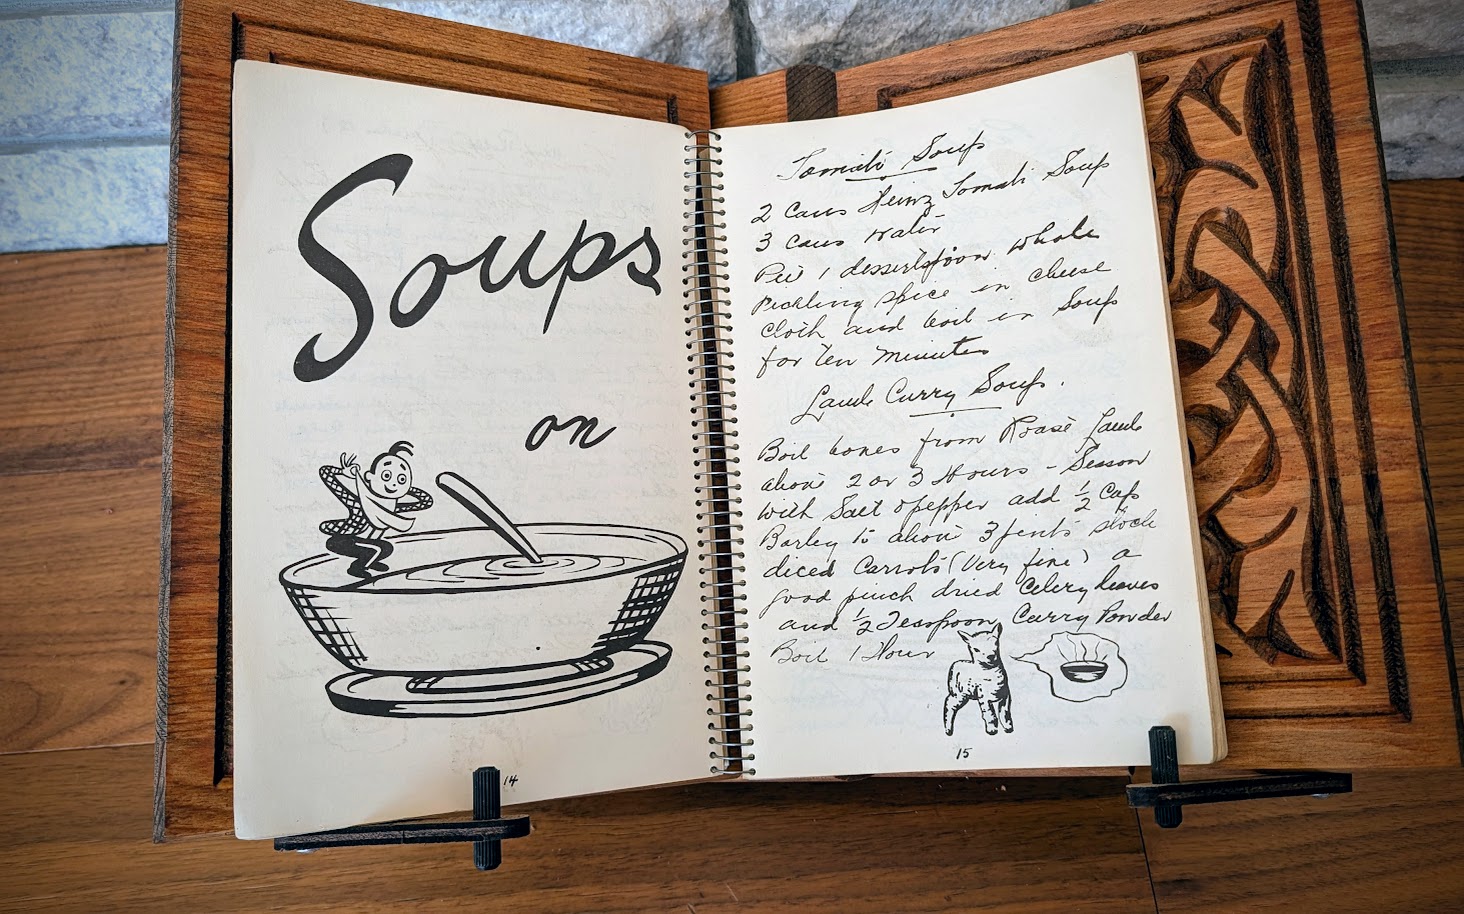 Soups
on
14
Tomato Soup
2 Cans Heinz Tomato Soup
3 Cans Water
Put 1 dessertspoon whole
Pickling Spice in cheese
cloth and boil in Soup
for Ten Minutes
Lamb Curry Soup.
Boil bones from Roast Lamb
about 2 or 3 Hours - Season
with Salt & pepper add ½ Cup
Barley to about 3 pints stock
diced Carrots (Very fine) a
good pinch dried Celery leaves
and ½ Teaspoon Curry Powder
Boil 1 Hour
15